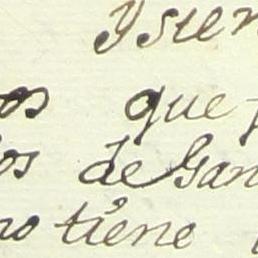 y sien
os que
os de Gan
no tiene